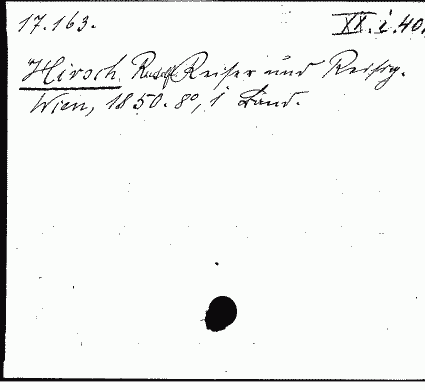 17.163. XX.i.40.
Hirsch, Rudolf Reiser und Reisig.
Wien, 1850. 8°, 1 Band.